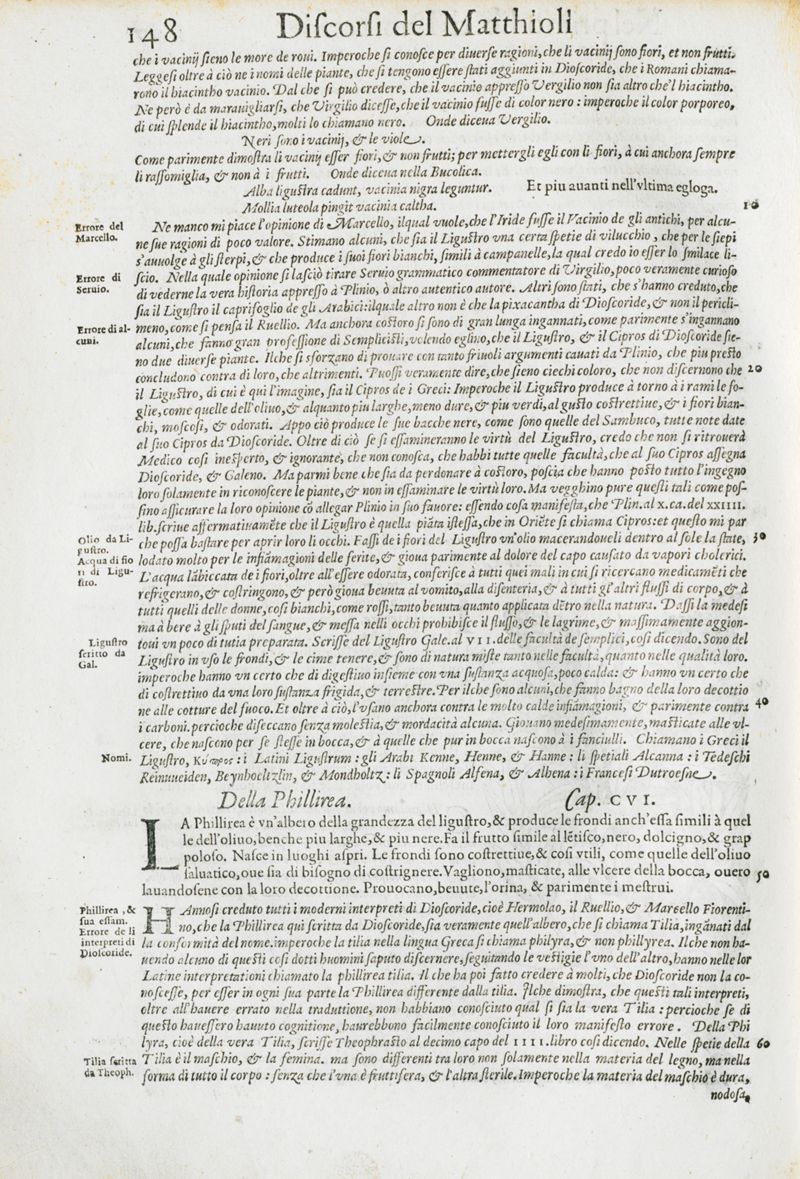 148 Diſcorſi del Matthioli
che i vacinij ſieno le more de roui. Imperoche ſi conoſce per diuerſe ragioni, che li vacinij ſono fiori, et non frutti.
Leggeſi oltre à ciò ne i nomi delle piante, che ſi tengono eſſere ſtati aggiunti in Dioſcoride, che i Romani chiama-
rono il hiacintho vacinio. Dal che ſi può credere, che il vacinio appreſſo Vergilio non ſia altro che'l hiacintho.
Ne però è da marauigliarſi, che Virgilio diceſſe, che il vacinio fuſſe di color nero: imperoche il color porporeo,
di cui ſplende il hiacintho, molti lo chiamano nero. Onde diceua Vergilio.
Neri ſono i vacinij, & le viole.
Come parimente dimoſtra li vacinij eſſer fiori, & non frutti; per mettergli egli con li fiori, à cui anchora ſempre
li raſſomiglia, & non à i frutti. Onde diceua nella Bucolica.
Alba liguſtra cadunt, vacinia nigra leguntur. Et piu auanti nell'vltima egloga.
Mollia luteola pingit vacinia caltha. 10
Errore del
Marcello.
Ne manco mi piace l'opinione di Marcello, ilqual vuole, che l'Iride fuſſe il Vacinio de gli antichi, per alcu-
ne ſue ragioni di poco valore. Stimano alcuni, che ſia il Liguſtro vna certa ſpetie di vilucchio, che per le ſiepi
s'auuolge à gli ſterpi, & che produce i ſuoi fiori bianchi, ſimili à campanelle, la qual credo io eſſer lo ſmilace li-
Errore di
Seruio.
ſcio. Nella quale opinione ſi laſciò tirare Seruio grammatico commentatore di Virgilio, poco veramente curioſo
di vederne la vera hiſtoria appreſſo à Plinio, ò altro autentico autore. Altri ſono ſtati, che s'hanno creduto, che
ſia il Liguſtro il caprifoglio de gli Arabici: ilquale altro non è che la pixacantha di Dioſcoride, & non il pericli-
Errore di al-
cuni.
meno, come ſi penſa il Ruellio. Ma anchora coſtoro ſi ſono di gran lunga ingannati, come parimente s'ingannano
alcuni, che fanno gran profeſſione di Sempliciſti, volendo eglino, che il Liguſtro, & il Cipros di Dioſcoride ſie-
no due diuerſe piante. Ilche ſi sforzano di prouare con tanto friuoli argumenti cauati da Plinio, che piu preſto
concludono contra di loro, che altrimenti. Puoſſi veramente dire, che ſieno ciechi coloro, che non diſcernono che 20
il Liguſtro, di cui è qui l'imagine, ſia il Cipros de i Greci: Imperoche il Liguſtro produce à torno à i rami le fo-
glie, come quelle dell'oliuo, & alquanto piu larghe, meno dure, & piu verdi, al guſto coſtrettiue, & i fiori bian-
chi, moſcoſi, & odorati. Appo ciò produce le ſue bacche nere, come ſono quelle del Sambuco, tutte note date
al ſuo Cipros da Dioſcoride. Oltre di ciò ſe ſi eſſamineranno le virtù del Liguſtro, credo che non ſi ritrouerà
Medico coſi ineſperto, & ignorante, che non conoſca, che habbi tutte quelle facultà, che al ſuo Cipros aſſegna
Dioſcoride, & Galeno. Ma parmi bene che ſia da perdonare à coſtoro, poſcia che hanno poſto tutto l'ingegno
loro ſolamente in riconoſcere le piante, & non in eſſaminare le virtù loro. Ma vegghino pure queſti tali come poſ-
ſino aſſicurare la loro opinione cō allegar Plinio in ſuo fauore: eſſendo coſa manifeſta, che Plin. al x. ca. del xxiiii.
lib. ſcriue affermatiuamēte che il Liguſtro è quella piāta iſteſſa, che in Oriēte ſi chiama Cipros: et queſto mi par
Olio da Li-
guſtro.
che poſſa baſtare per aprir loro li occhi. Faſſi de i fiori del Liguſtro vn'olio macerandoueli dentro al ſole la ſtate, 30
Acqua di fio
ri di Ligu-
ſtro.
lodato molto per le infiāmagioni delle ferite, & gioua parimente al dolore del capo cauſato da vapori cholerici.
L'acqua lābiccata de i fiori, oltre all'eſſere odorata, conferiſce à tutti quei mali in cui ſi ricercano medicamēti che
refrigerano, & coſtringono, & però gioua beuuta al vomito, alla diſenteria, & à tutti gl'altri fluſſi di corpo, & à
tutti quelli delle donne, coſi bianchi, come roſſi, tanto beuuta quanto applicata dētro nella natura. Daſſi la medeſi
ma à bere à gli ſputi del ſangue, & meſſa nelli occhi prohibiſce il fluſſo, & le lagrime, & maſſimamente aggion-
Liguſtro
ſcritto da
Gal.
toui vn poco di tutia preparata. Scriſſe del Liguſtro Gale. al vii. delle facultà de ſemplici, coſi dicendo. Sono del
Liguſtro in vſo le frondi, & le cime tenere, & ſono di natura miſte tanto nelle facultà, quanto nelle qualità loro.
imperoche hanno vn certo che di digeſtiuo inſieme con vna ſuſtanza acquoſa, poco calda: & hanno vn certo che
di coſtrettiuo da vna loro ſuſtanza frigida, & terreſtre. Per ilche ſono alcuni, che fanno bagno della loro decottio
ne alle cotture del fuoco. Et oltre à ciò, l'vſano anchora contra le molto calde infiāmagioni, & parimente contra 40
i carboni. percioche diſeccano ſenza moleſtia, & mordacità alcuna. Giouano medeſimamente, maſticate alle vl-
cere, che naſcono per ſe ſteſſe in bocca, & à quelle che pur in bocca naſcono à i fanciulli. Chiamano i Greci il
Nomi.
Liguſtro, Κύπρος: i Latini Liguſtrum: gli Arabi Kenne, Henne, & Hanne: li ſpetiali Alcanna: i Tedeſchi
Reinuueiden, Beynhoeltzlin, & Mondholtz: li Spagnoli Alfena, & Alhena: i Franceſi Dutroeſne.
Della Phillirea. Cap. CVI.
LA Phillirea è vn'albero della grandezza del liguſtro, & produce le frondi anch'eſſa ſimili à quel
le dell'oliuo, benche piu larghe, & piu nere. Fa il frutto ſimile al lētiſco, nero, dolcigno, & grap
poloſo. Naſce in luoghi aſpri. Le frondi ſono coſtrettiue, & coſi vtili, come quelle dell'oliuo
ſaluatico, oue ſia di biſogno di coſtrignere. Vagliono, maſticate, alle vlcere della bocca, ouero 50
lauandoſene con la loro decottione. Prouocano, beuute, l'orina, & parimente i meſtrui.
Phillirea, &
ſua eſſam.
Errore de li
interpreti di
Dioſcoride.
HAnnoſi creduto tutti i moderni interpreti di Dioſcoride, cioè Hermolao, il Ruellio, & Marcello Fiorenti-
no, che la Phillirea qui ſcritta da Dioſcoride, ſia veramente quell'albero, che ſi chiama Tilia, ingānati dal
la conformità del nome. imperoche la tilia nella lingua Greca ſi chiama philyra, & non phillyrea. Ilche non ha-
uendo alcuno di queſti coſi dotti huomini ſaputo diſcernere, ſeguitando le veſtigie l'vno dell'altro, hanno nelle lor
Latine interpretationi chiamato la phillirea tilia. Il che ha poi fatto credere à molti, che Dioſcoride non la co-
noſceſſe, per eſſer in ogni ſua parte la Phillirea differente dalla tilia. Ilche dimoſtra, che queſti tali interpreti,
oltre all'hauere errato nella traduttione, non habbiano conoſciuto qual ſi ſia la vera Tilia: percioche ſe di
queſto haueſſero hauuto cognitione, haurebbono facilmente conoſciuto il loro manifeſto errore. Della Phi
lyra, cioè della vera Tilia, ſcriſſe Theophraſto al decimo capo del iiii. libro coſi dicendo. Nelle ſpetie della 60
Tilia ſcritta
da Theoph.
Tilia è il maſchio, & la femina. ma ſono differenti tra loro non ſolamente nella materia del legno, ma nella
forma di tutto il corpo: ſenza che l'vna è fruttifera, & l'altra ſterile. Imperoche la materia del maſchio è dura,
nodoſa,